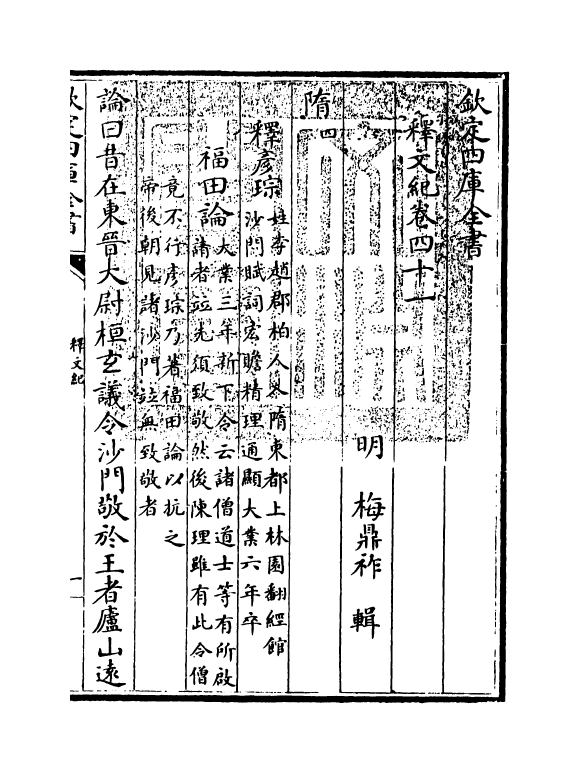 欽定四庫全書
釋文紀卷四十一
明　梅鼎祚　輯
隋四
釋彥琮姓李趙郡柏人入隋東都上林園翻經館
沙門賦詞宏贍精理通顯大業六年卒
福田論大業三年新下令云諸僧道士等有所啟
請者竝先須致敬然後陳理雖有此令僧
竟不行彥琮乃著福田論以抗之
帝後朝見諸沙門竝無致敬者
論曰昔在東晉大尉桓玄議令沙門敬於王者廬山遠
欽定四庫全書
釋文紀
一